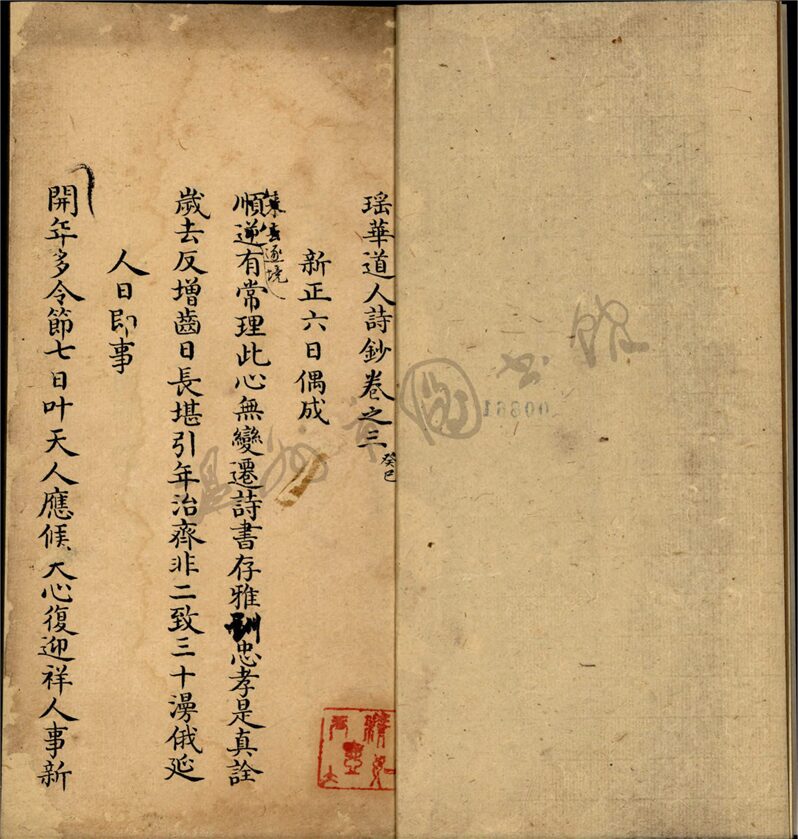 瑶華道人詩鈔卷之三 癸巳
新正六日偶成
來去逐境
順逆有常理此心無變遷詩書存雅訓忠孝是真詮
歲去反增齒日長堪引年治齊非二致三十漫俄延
人日即事
開年多令節七日叶天人應候天心復迎祥人事新
00361